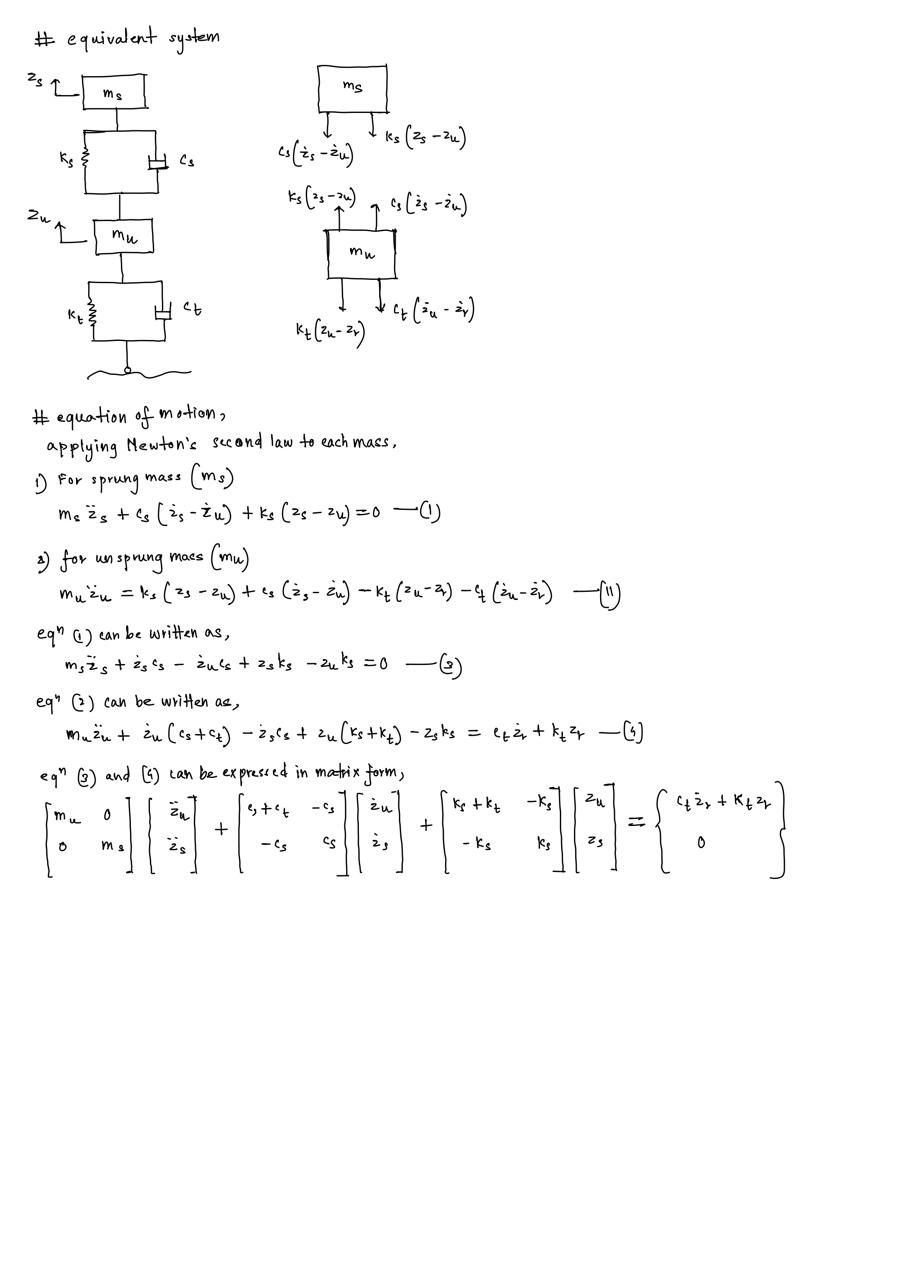 # equivalent system
z_s
m_s
k_s
c_s
z_u
m_u
k_t
c_t
m_s
c_s(ż_s - ż_u)
k_s(z_s - z_u)
k_s(z_s - z_u)
c_s(ż_s - ż_u)
m_u
k_t(z_u - z_r)
c_t(ż_u - ż_r)
# equation of motion,
applying Newton's second law to each mass,
1) For sprung mass (m_s)
m_s z̈_s + c_s(ż_s - ż_u) + k_s(z_s - z_u) = 0 —(1)
2) for unsprung mass (m_u)
m_u z̈_u = k_s(z_s - z_u) + c_s(ż_s - ż_u) - k_t(z_u - z_r) - c_t(ż_u - ż_r) —(11)
eqⁿ (1) can be written as,
m_s z̈_s + ż_s c_s - ż_u c_s + z_s k_s - z_u k_s = 0 —(3)
eqⁿ (2) can be written as,
m_u z̈_u + ż_u(c_s + c_t) - ż_s c_s + z_u(k_s + k_t) - z_s k_s = c_t ż_r + k_t z_r —(4)
eqⁿ (3) and (4) can be expressed in matrix form,
[m_u 0] [z̈_u] + [c_s + c_t -c_s] [ż_u] + [k_s + k_t -k_s] [z_u] = {c_t ż_r + k_t z_r}
[0 m_s] [z̈_s] [-c_s c_s] [ż_s] [-k_s k_s] [z_s] {0}